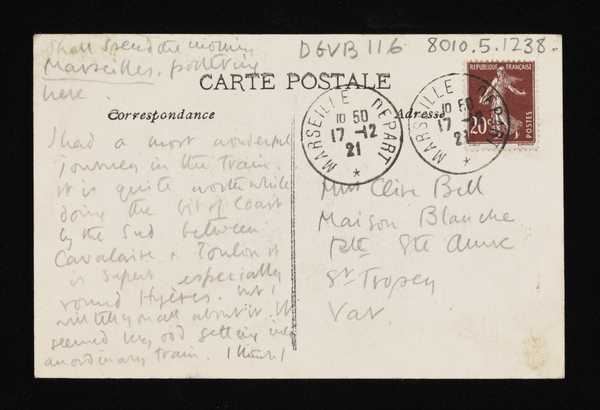 DGVB 116 8010.5.1238.
Shall spend the morning
Marseilles. pottering
here.
CARTE POSTALE
Correspondance
Adresse
REPUBLIQUE FRANÇAISE
20c
POSTES
MARSEILLE DEPART
10 50
17 -12
21
*
MARSEILLE DEPART
10 50
17 -12
21
*
I had a most wonderful
journey in the train.
it is quite worth while
doing the bit of Coast
by the Sud between
Cavalaire & Toulon it
is superb especially
round Hyères. but I
will tell you all about it. It
seemed very odd getting into
an ordinary train. I think I
Mrs Clive Bell
Maison Blanche
Rte Ste Anne
St Tropez
Var